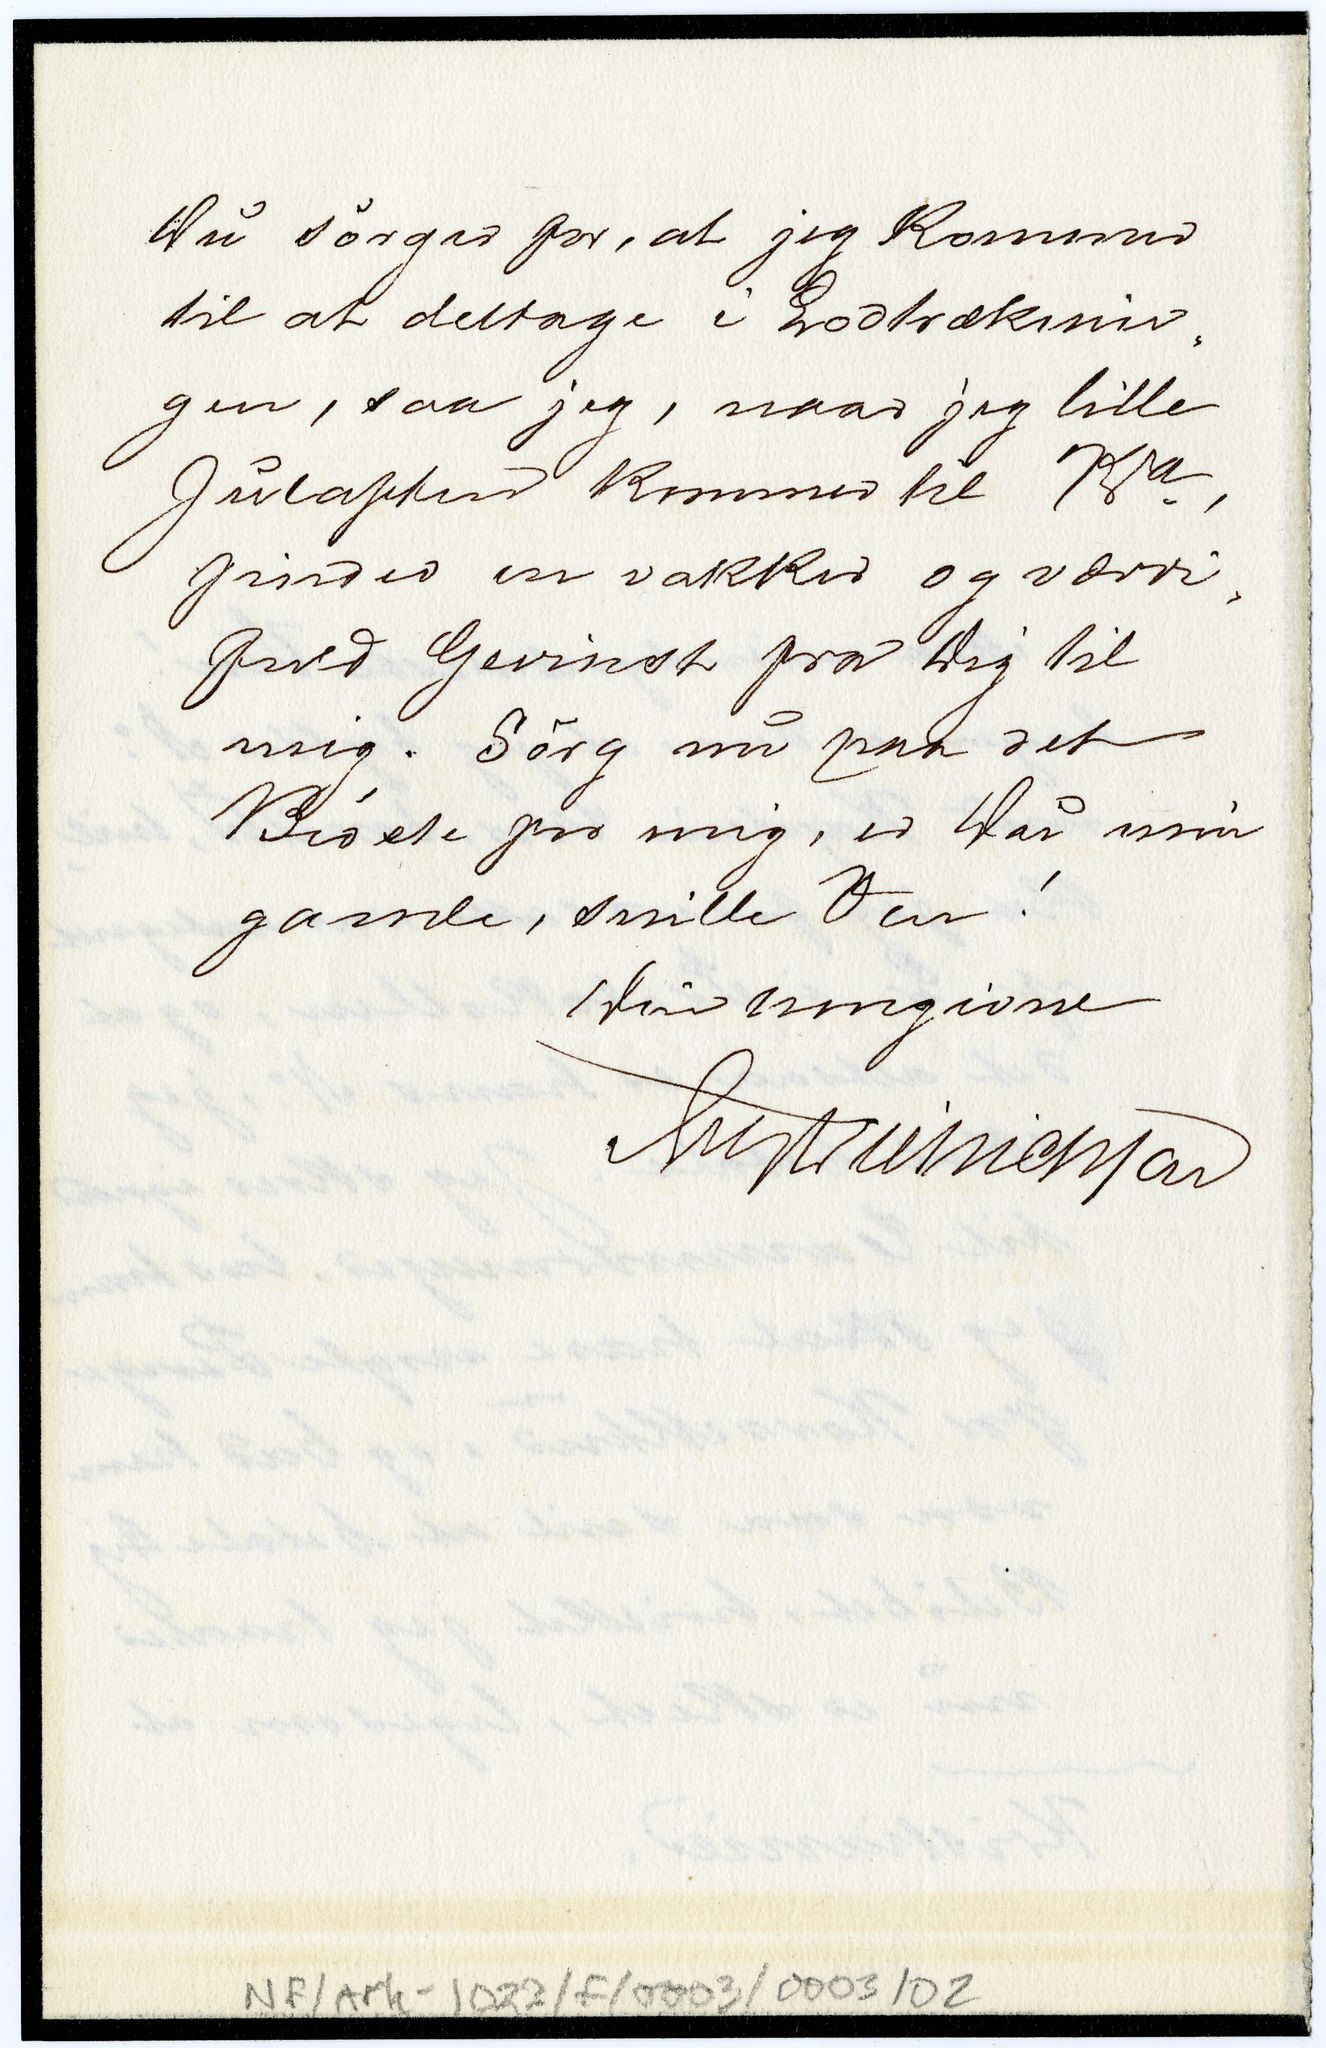 Du sörger for, at jeg kommer
til at deltage i Lodtræknin-
gen, saa jeg, naar jeg lille
Juleaften kommer til Kra.,
finder en vakker og værdi-
fuld Gevinst fra Dig til
mig. Sörg nu paa det
Bedste for mig, er Du min
gamle, snille Ven!
Din hengivne
NF/Ark-1022/F/0003/0003/02